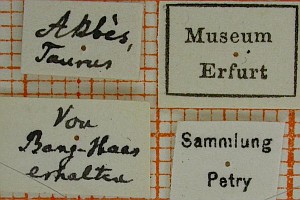 Akbès,
Taurus
Museum
Erfurt
Von
Bang-Haas
erhalten
Sammlung
Petry